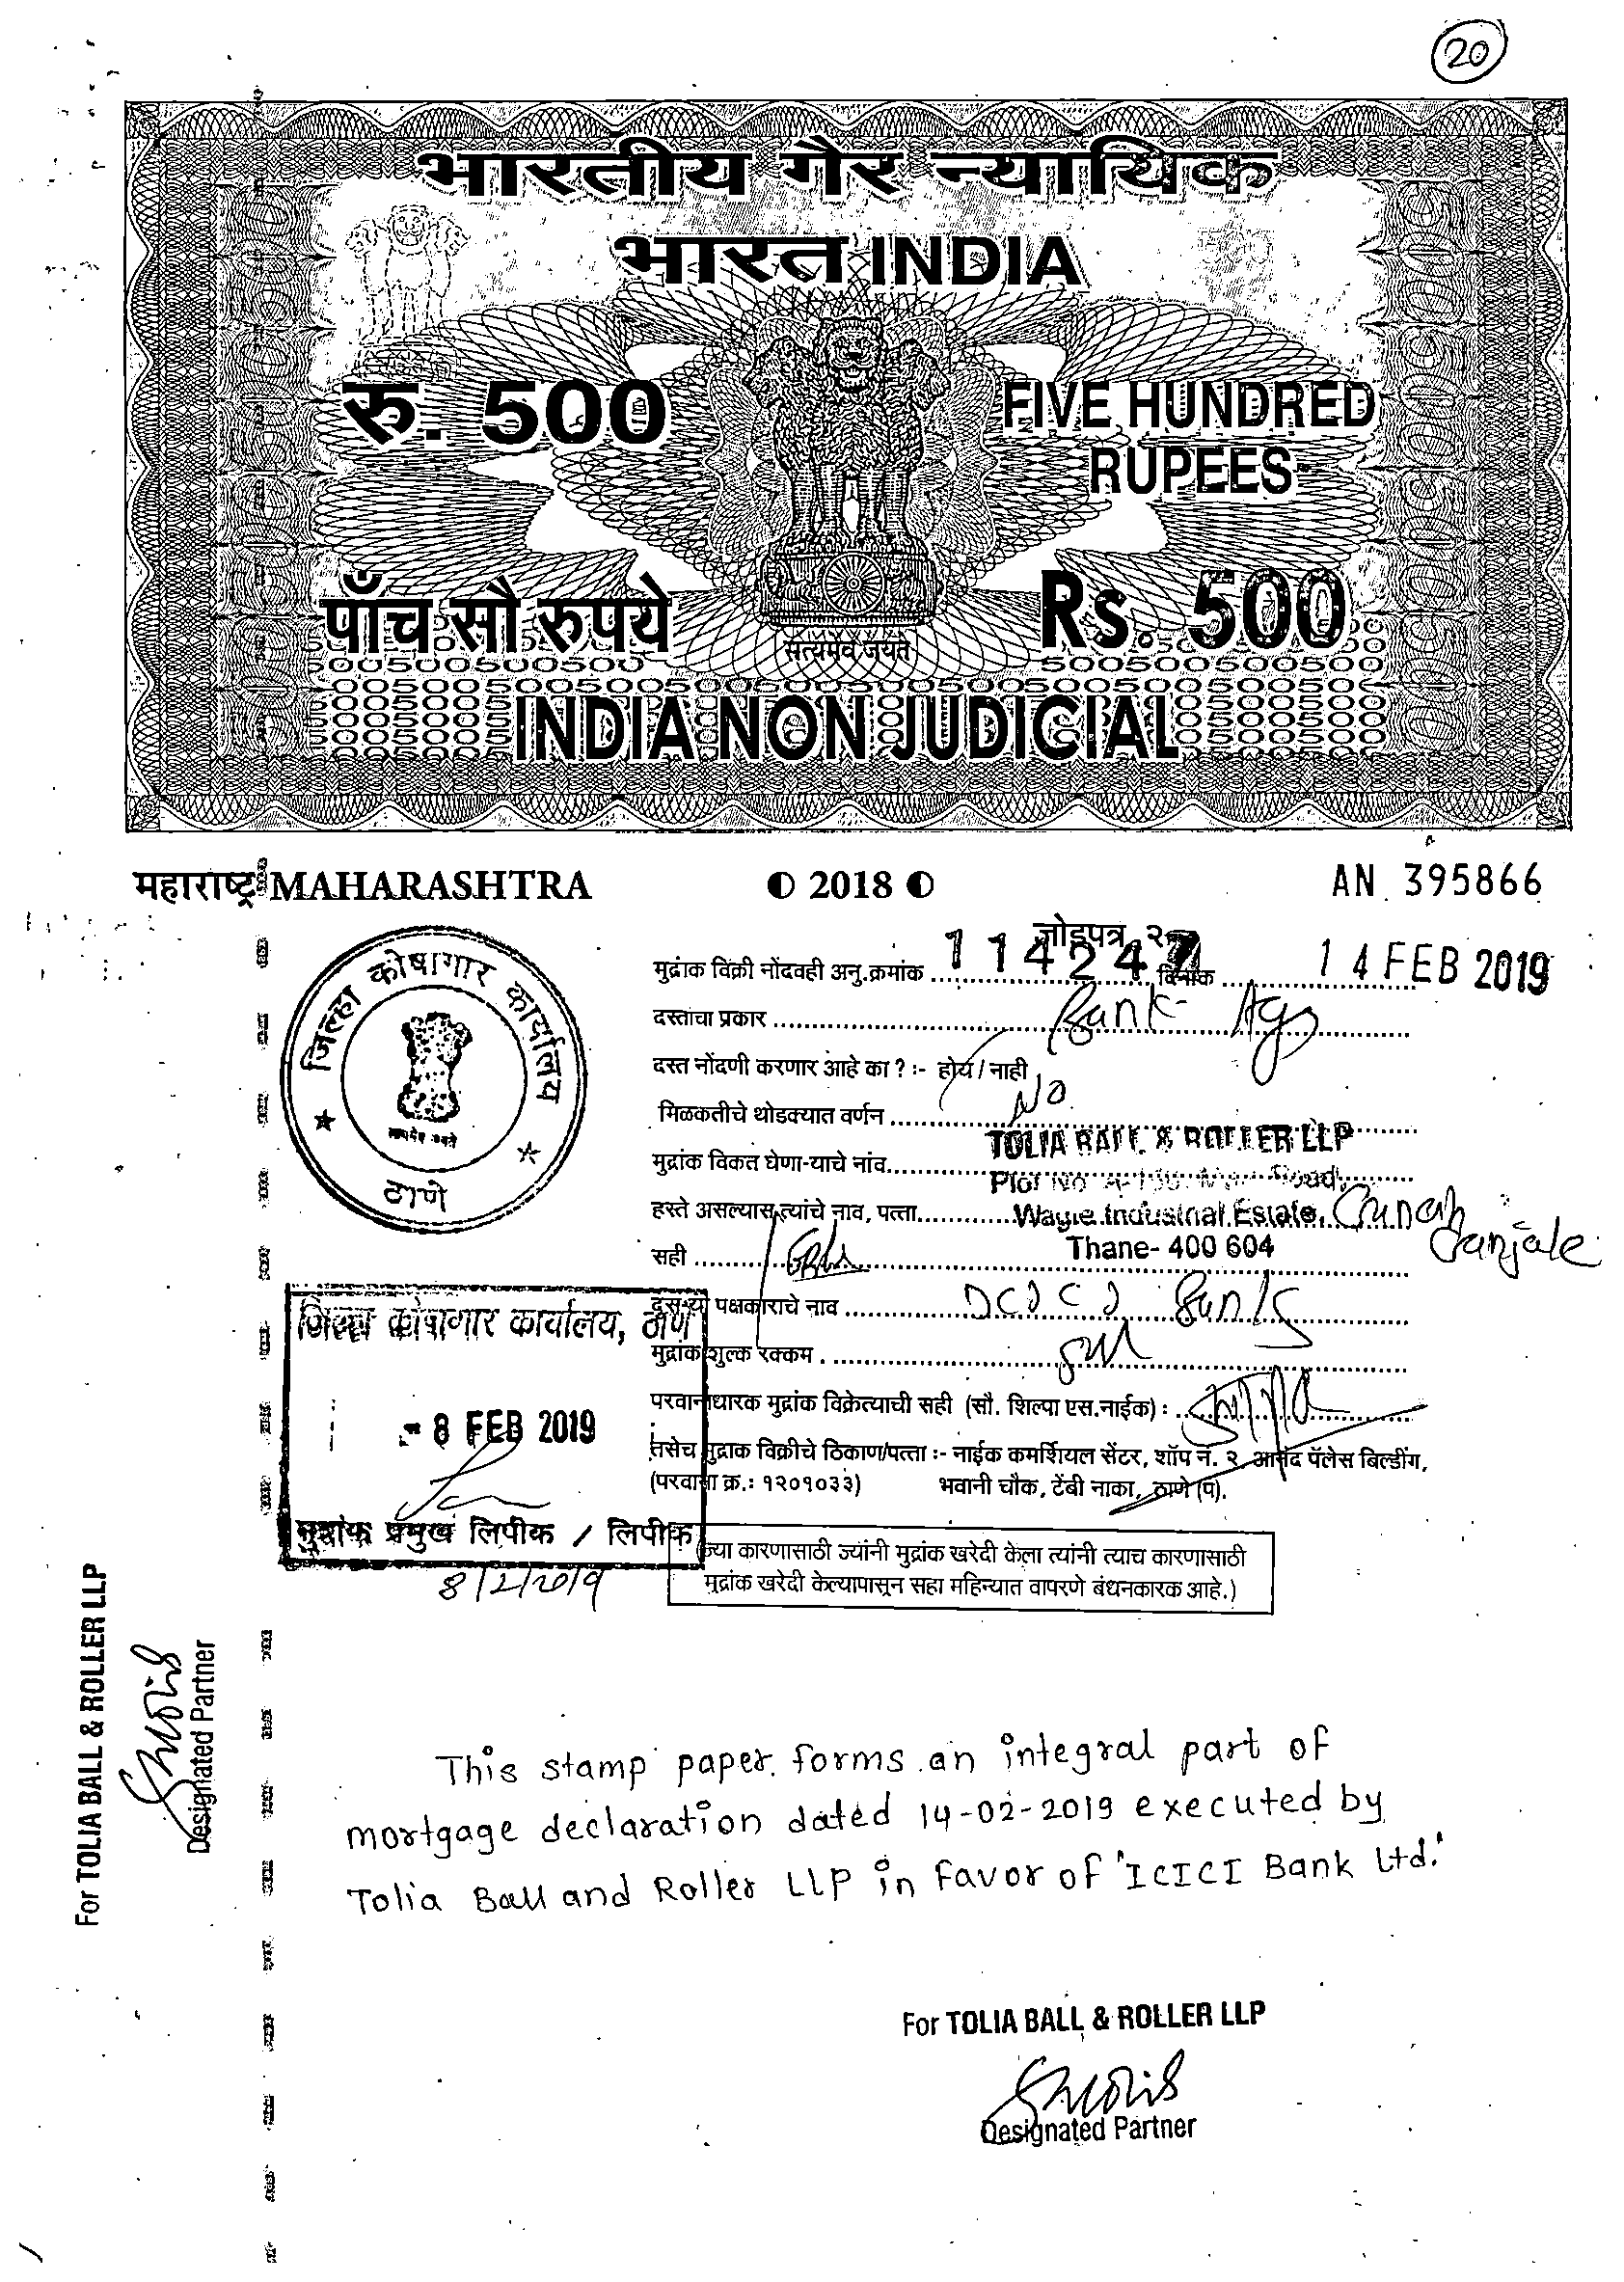 20
भारतीय गैर न्यायिक
भारत INDIA
रु. 500
FIVE HUNDRED
RUPEES
पाँच सौ रुपये
Rs. 500
सत्यमेव जयते
INDIA NON JUDICIAL
महाराष्ट्र MAHARASHTRA
2018
AN 395866
जिल्हा कोषागार कार्यालय
ठाणे
जोडपत्र २
मुद्रांक विक्री नोंदवही अनु.क्रमांक 11424 दिनांक 14 FEB 2019
दस्ताचा प्रकार Bank
दस्त नोंदणी करणार आहे का ? :- होय / नाही
No
मिळकतीचे थोडक्यात वर्णन
मुद्रांक विकत घेणा-याचे नांव TOLIA BALL & ROLLER LLP
Plot No Road,
हस्ते असल्यास त्यांचे नाव, पत्ता Wagle Industrial Estate,
Thane- 400 604
सही
दुस-या पक्षकाराचे नाव ICICI Bank
मुद्रांक शुल्क रक्कम
परवानाधारक मुद्रांक विक्रेत्याची सही (सौ. शिल्पा एस.नाईक) :
तसेच मुद्रांक विक्रीचे ठिकाण/पत्ता :- नाईक कमर्शियल सेंटर, शॉप नं. २, आनंद पॅलेस बिल्डींग,
(परवाना क्र.: १२०१०३३) भवानी चौक, टेंबी नाका, ठाणे (प).
जिल्हा कोषागार कार्यालय, ठाणे
- 8 FEB 2019
मुद्रांक प्रमुख लिपीक / लिपीक
8/2/2019
(ज्या कारणासाठी ज्यांनी मुद्रांक खरेदी केला त्यांनी त्याच कारणासाठी
मुद्रांक खरेदी केल्यापासून सहा महिन्यात वापरणे बंधनकारक आहे.)
For TOLIA BALL & ROLLER LLP
Designated Partner
This stamp paper forms an integral part of
mortgage declaration dated 14-02-2019 executed by
Tolia Ball and Roller LLP in favor of 'ICICI Bank Ltd.'
For TOLIA BALL & ROLLER LLP
Designated Partner